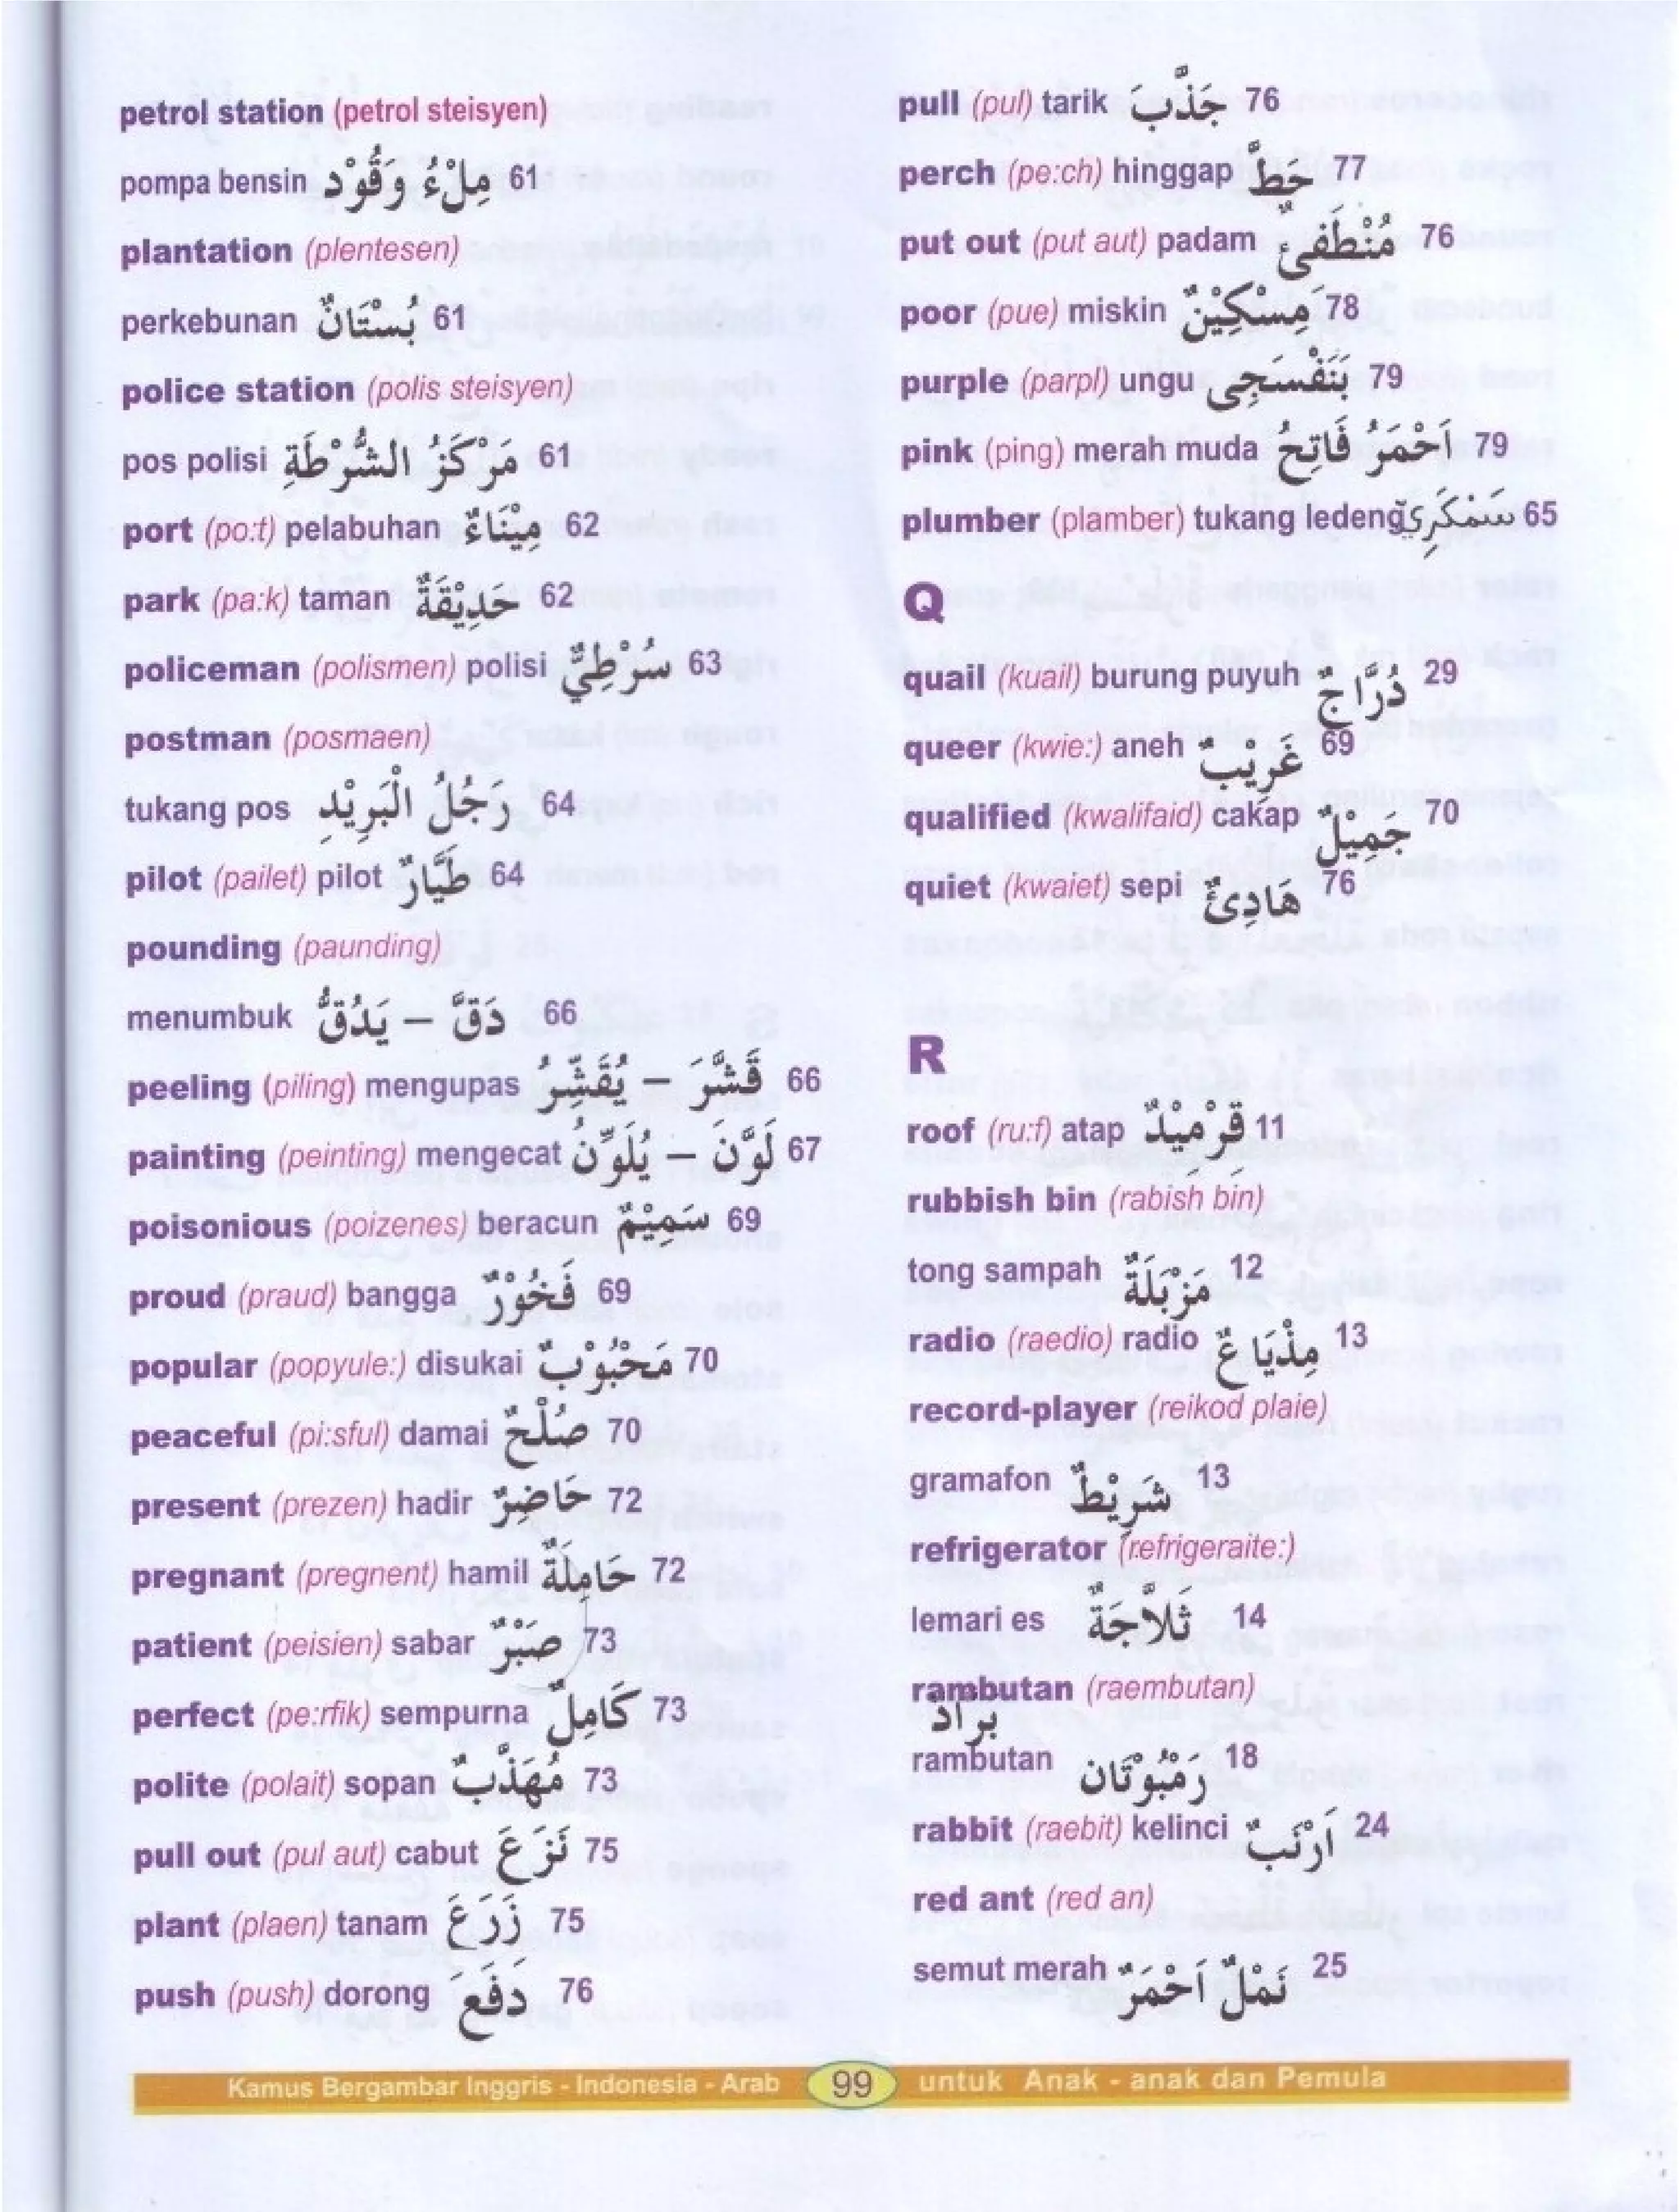 petrol station (petrol steisyen)
pompa bensin مِلْءُ وَقُوْدِ 61
plantation (plentesen)
perkebunan بُسْتَانٌ 61
police station (polis steisyen)
pos polisi مَرْكَزُ الشُّرْطَةِ 61
port (po:t) pelabuhan مِيْنَاءٌ 62
park (pa:k) taman حَدِيْقَةٌ 62
policeman (polismen) polisi سُرْطِيٌّ 63
postman (posmaen)
tukang pos رَجُلُ الْبَرِيْدِ 64
pilot (pailet) pilot طَيَّارٌ 64
pounding (paunding)
menumbuk دَقَّ – يَدُقُّ 66
peeling (piling) mengupas قَشَّرَ – يُقَشِّرُ 66
painting (peinting) mengecat لَوَّنَ – يُلَوِّنُ 67
poisonious (poizenes) beracun سَمِيْمٌ 69
proud (praud) bangga فَخُوْرٌ 69
popular (popyule:) disukai مَحْبُوْبٌ 70
peaceful (pi:sful) damai صُلْحٌ 70
present (prezen) hadir حَاضِرٌ 72
pregnant (pregnent) hamil حَامِلَةٌ 72
patient (peisien) sabar صَبْرٌ 73
perfect (pe:rfik) sempurna كَامِلٌ 73
polite (polait) sopan مُهَذَّبٌ 73
pull out (pul aut) cabut نَزَعَ 75
plant (plaen) tanam زَرَعَ 75
push (push) dorong دَفَعَ 76
pull (pul) tarik جَذَّبَ 76
perch (pe:ch) hinggap حَطَّ 77
put out (put aut) padam مُنْطَفِئٌ 76
poor (pue) miskin مِسْكِيْنٌ 78
purple (parpl) ungu بَنَفْسَجِى 79
pink (ping) merah muda اَحْمَرُ فَاتِحُ 79
plumber (plamber) tukang ledeng سَمْكَرِيٌّ 65
Q
quail (kuail) burung puyuh دُرَّاجٌ 29
queer (kwie:) aneh غَرِيْبٌ 69
qualified (kwalifaid) cakap جَمِيْلٌ 70
quiet (kwaiet) sepi هَادِئٌ 76
R
roof (ru:f) atap قِرْمِيْدٌ 11
rubbish bin (rabish bin)
tong sampah مَزْبَلَةٌ 12
radio (raedio) radio مِذْيَاعٌ 13
record-player (reikod plaie)
gramafon شَرِيْطٌ 13
refrigerator (refrigeraite:)
lemari es ثَلَّاجَةٌ 14
rambutan (raembutan)
برادٌ
rambutan رَمْبُوْتَان 18
rabbit (raebit) kelinci اَرْنَبٌ 24
red ant (red an)
semut merah نَمْلٌ اَحْمَرٌ 25
Kamus Bergambar Inggris - Indonesia - Arab 99 untuk Anak - anak dan Pemula